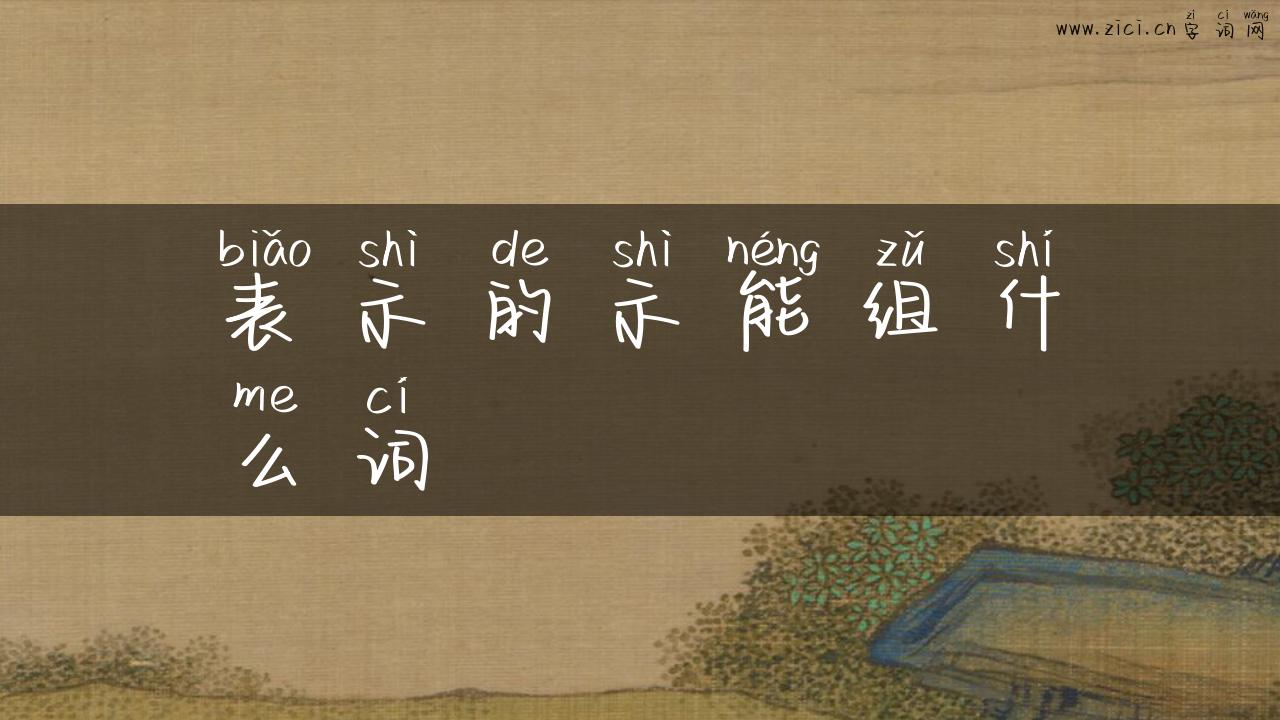 zì cí wǎng
www.zici.cn 字词网
biǎo shì de shì néng zǔ shí
表示的示能组什
me cí
么词